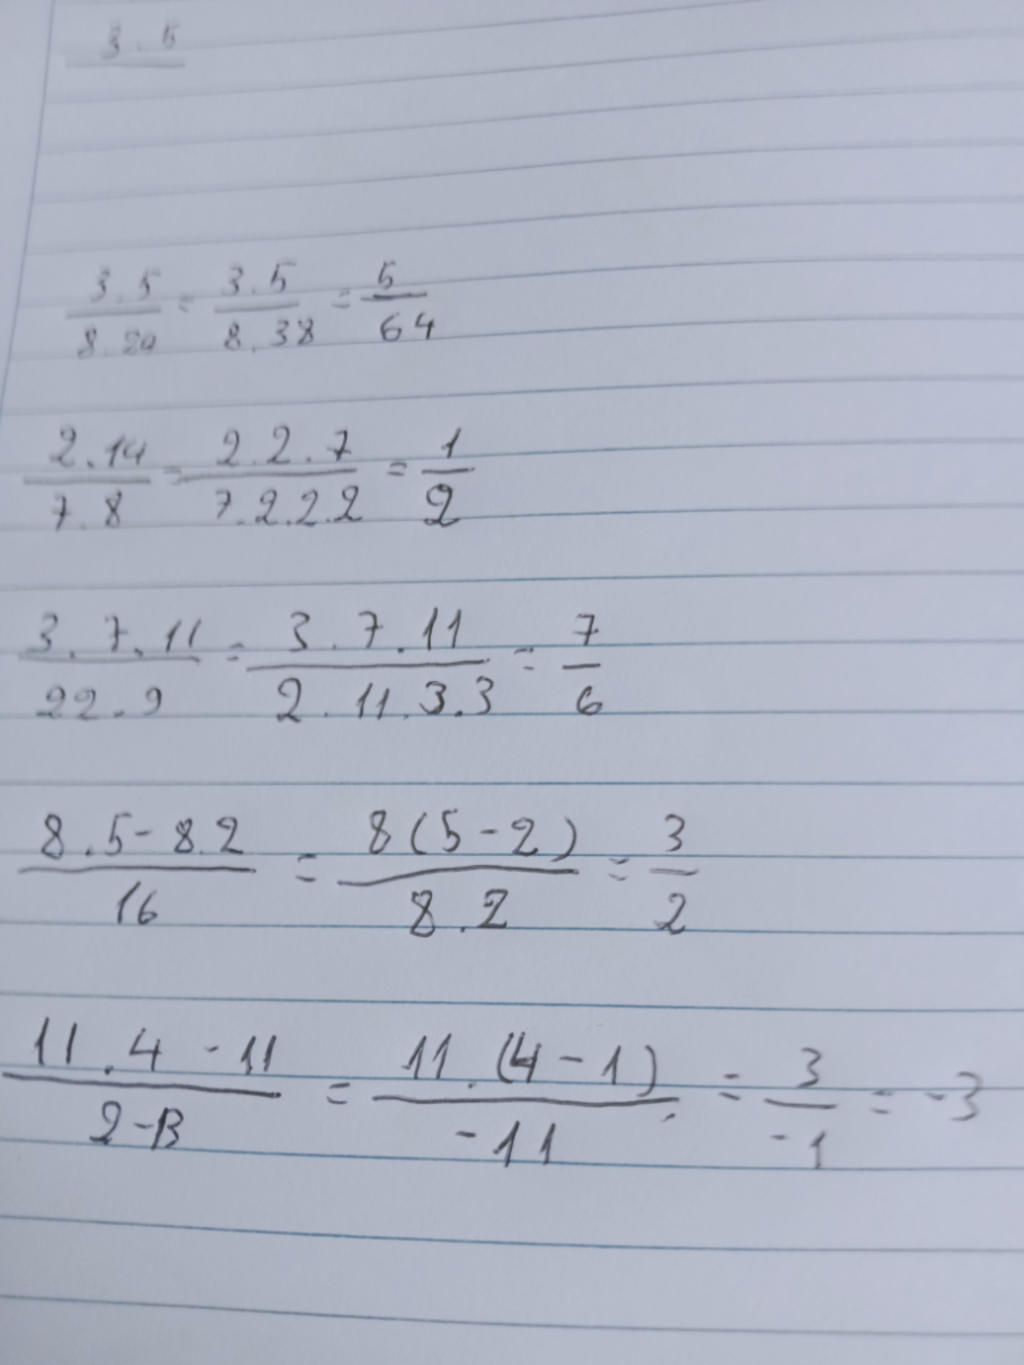 3.5
3.5/8.24 = 3.5/8.38 = 5/64
2.14/7.8 = 2.2.7/7.2.2.2 = 1/2
3.7.11/22.9 = 3.7.11/2.11.3.3 = 7/6
8.5-8.2/16 = 8(5-2)/8.2 = 3/2
11.4-11/2-13 = 11.(4-1)/-11 = 3/-1 = -3